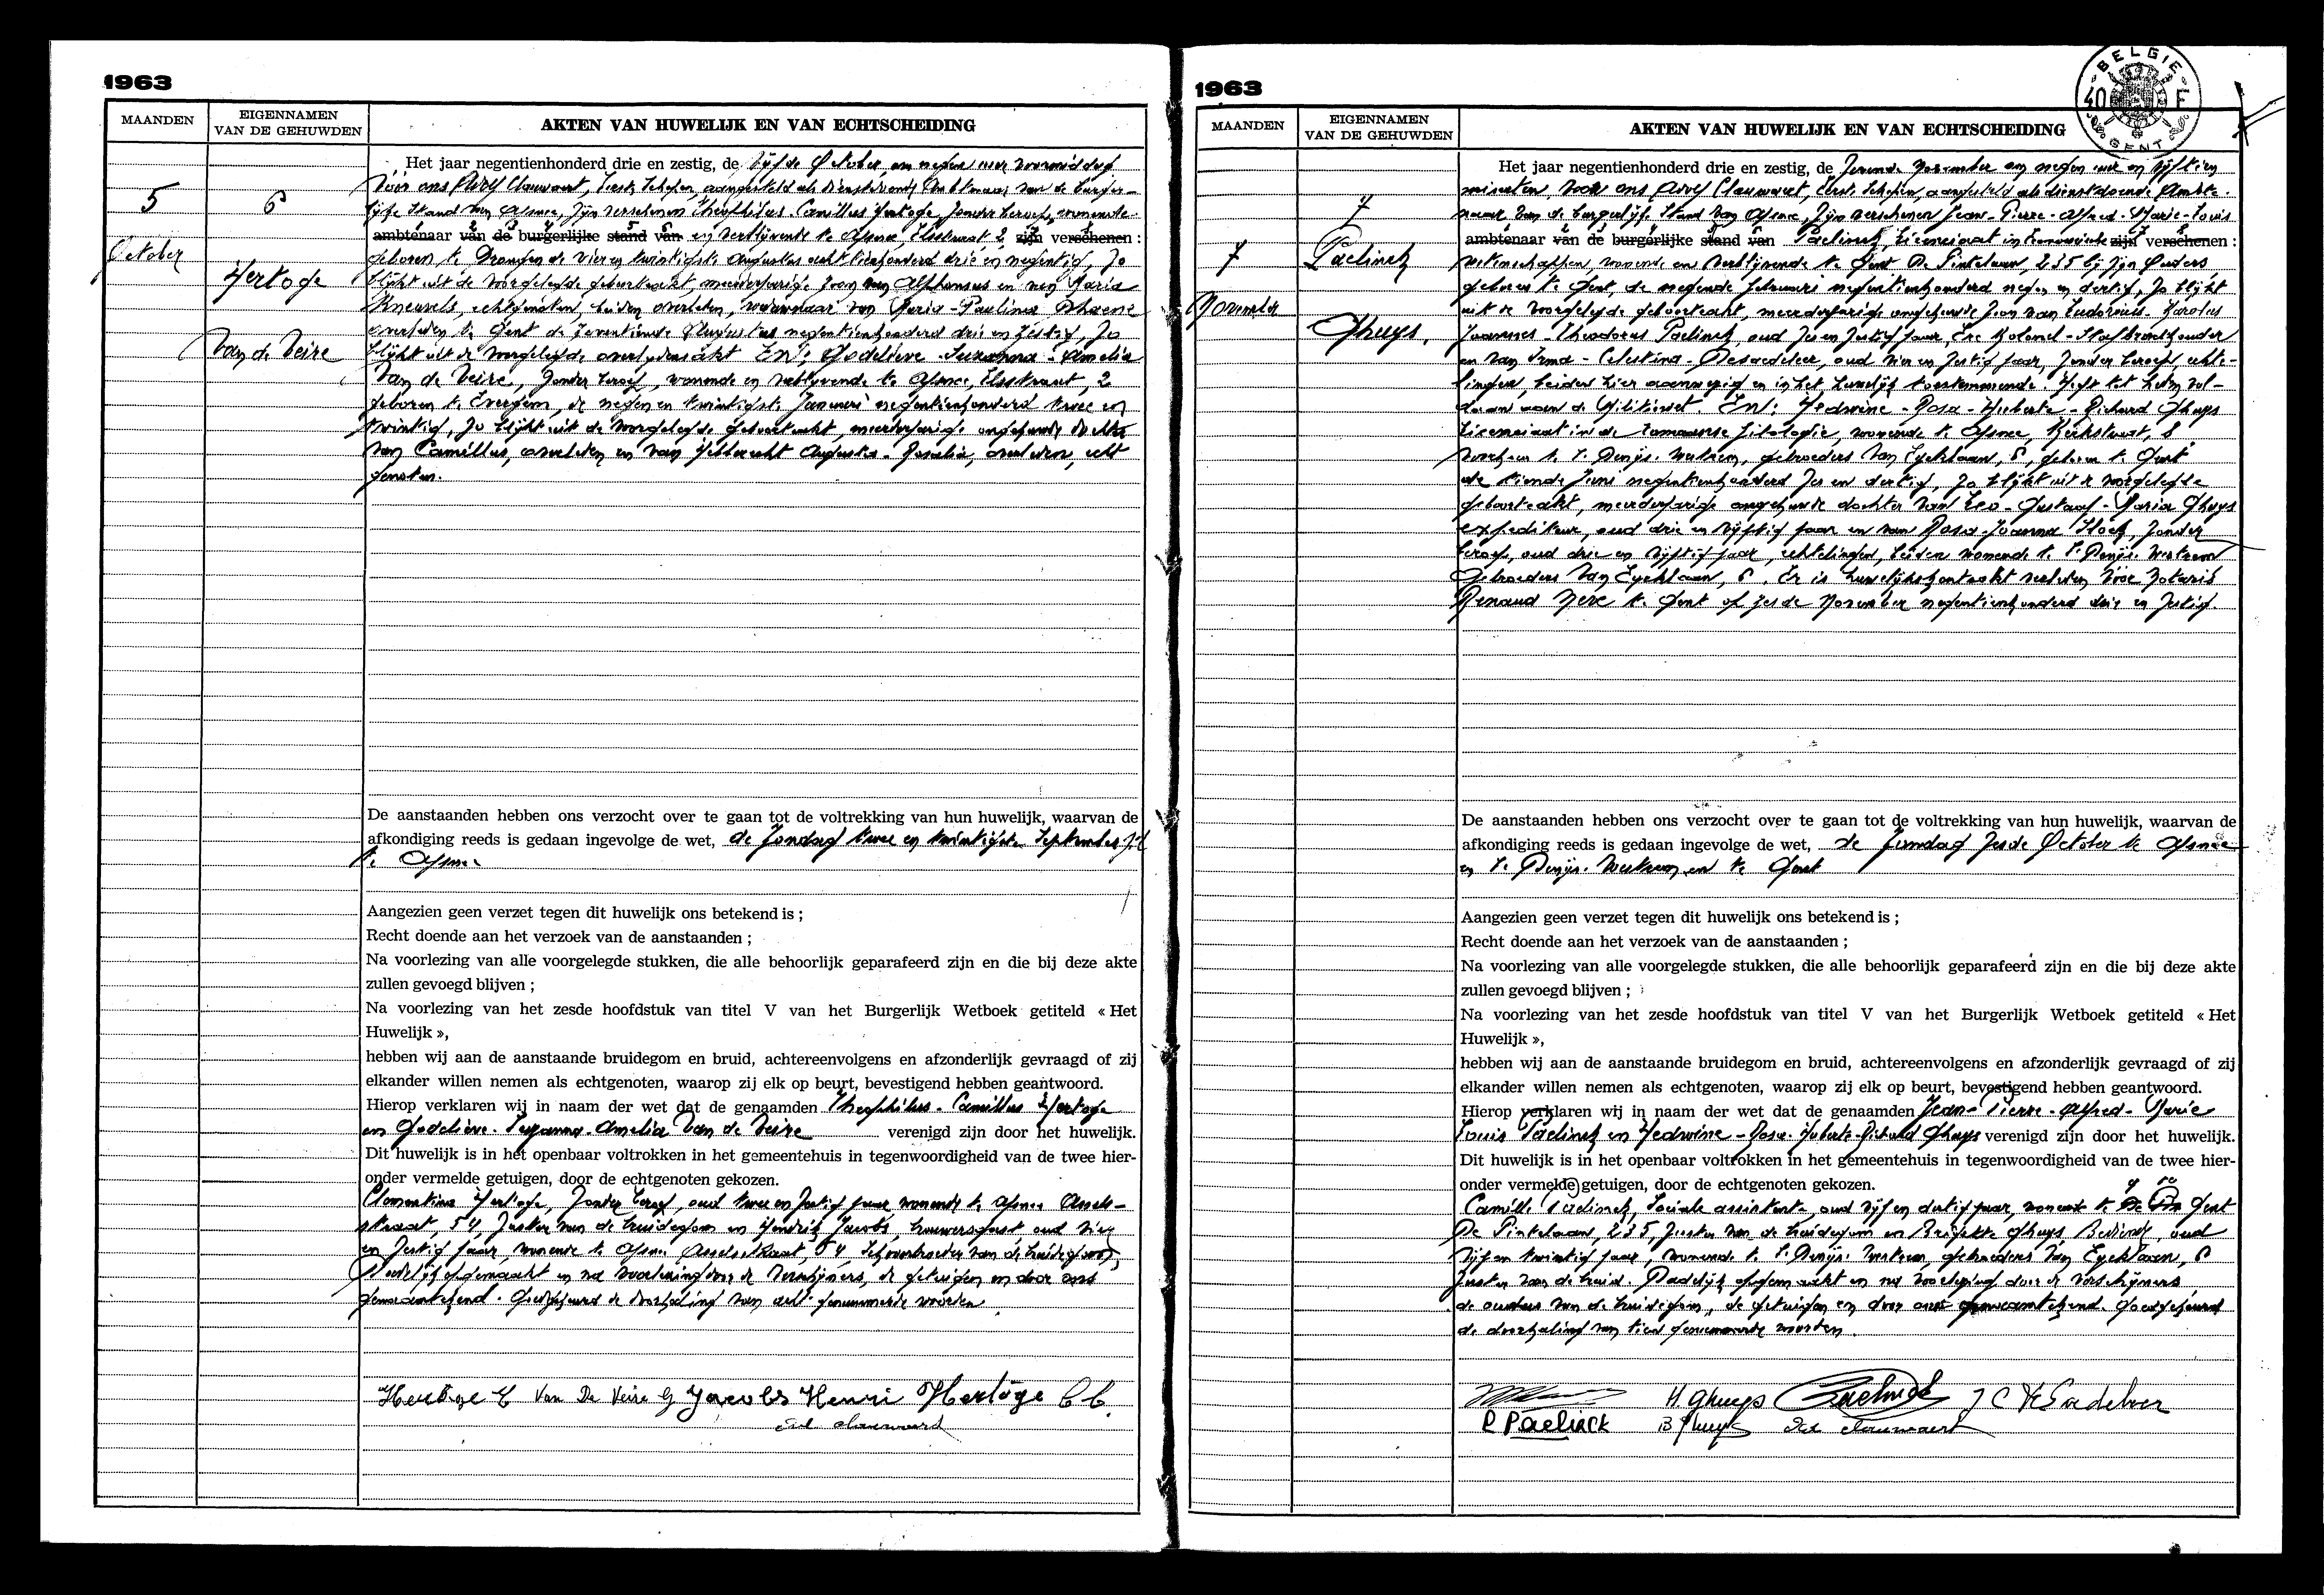 1963
MAANDEN
EIGENNAMEN
VAN DE GEHUWDEN
AKTEN VAN HUWELIJK EN VAN ECHTSCHEIDING
5
October
6
Hertoge
Van de Veire
Het jaar negentienhonderd drie en zestig, de vijfde October om negen uur voormiddag
Vóór ons Adolf Clauwaert, Eerste Schepen, aangesteld als dienstdoende Ambtenaar van de Burger-
lijke Stand van Afsnee, zijn verschenen Theophilus Camillus Hertoge, zonder beroep, wonende
ambtenaar van de burgerlijke stand van en verblijvende te Afsnee, 2 zijn verschenen :
geboren te Drongen de vier en twintigste Augustus achttienhonderd drie en negentig, zo
blijkt uit de voorgelegde geboorteakt, meerderjarige zoon van Alphonsus en van Maria
Kneuvels, echtgenoten, beiden overleden, weduwnaar van Maria-Paulina
overleden te Gent de zeventiende Augustus negentienhonderd drie en zestig, zo
blijkt uit de voorgelegde overlijdensakt En: Godelieve-Suzanna-Amelia
Van de Veire, zonder beroep, wonende en verblijvende te Afsnee, 2
geboren te Evergem, de negen en twintigste Januari negentienhonderd twee en
twintig, zo blijkt uit de voorgelegde geboorteakt, meerderjarige ongehuwde dochter
van Camillus, overleden en van Augusta-Rosalia, overleden, echt
genoten.
De aanstaanden hebben ons verzocht over te gaan tot de voltrekking van hun huwelijk, waarvan de
afkondiging reeds is gedaan ingevolge de wet, de Zondag twee en twintigste September j.l.
te Afsnee
Aangezien geen verzet tegen dit huwelijk ons betekend is ;
Recht doende aan het verzoek van de aanstaanden ;
Na voorlezing van alle voorgelegde stukken, die alle behoorlijk geparafeerd zijn en die bij deze akte
zullen gevoegd blijven ;
Na voorlezing van het zesde hoofdstuk van titel V van het Burgerlijk Wetboek getiteld « Het
Huwelijk »,
hebben wij aan de aanstaande bruidegom en bruid, achtereenvolgens en afzonderlijk gevraagd of zij
elkander willen nemen als echtgenoten, waarop zij elk op beurt, bevestigend hebben geantwoord.
Hierop verklaren wij in naam der wet dat de genaamden Theophilus-Camillus Hertoge
en Godelieve-Suzanna-Amelia Van de Veire verenigd zijn door het huwelijk.
Dit huwelijk is in het openbaar voltrokken in het gemeentehuis in tegenwoordigheid van de twee hier-
onder vermelde getuigen, door de echtgenoten gekozen.
Clementina Hertoge, zonder beroep, oud twee en zestig jaar wonende te Afsnee Assels-
straat, 54, zuster van de bruidegom en Hendrik Jacobs, brouwersgast, oud vier
en zestig jaar wonende te Afsnee Asselsstraat, 54 Schoonbroeder van de bruidegom,
Dadelijk opgemaakt en na voorlezing door de verschijners, de getuigen en door ons
ge­naamtekend. Goedgekeurd de doorhaling van acht genummerde woorden.
Hertoge T Van De Veire G Jacobs Henri Hertoge C C.
Ad. Clauwaert
1963
BELGIE
40 F
GENT
MAANDEN
EIGENNAMEN
VAN DE GEHUWDEN
AKTEN VAN HUWELIJK EN VAN ECHTSCHEIDING
7
November
7
Paelinck
Ghuys.
Het jaar negentienhonderd drie en zestig, de zevende November om negen uur en vijftien
minuten, voor ons Adolf Clauwaert, Eerste Schepen, aangesteld als dienstdoende Ambte-
naar van de burgerlijke Stand van Afsnee, zijn verschenen Jean-Pierre-Alfred-Marie-Louis
ambtenaar van de burgerlijke stand van Paelinck, Licenciaat in Economische zijn verschenen :
wetenschappen, wonende en verblijvende te Gent De Pintelaan, 235 bij zijn Ouders,
geboren te Gent, de negende Februari negentienhonderd negen en dertig, zo blijkt
uit de voorgelegde geboorteakt, meerderjarige ongehuwde zoon van Eudorus-Karolus
Joannes-Theodorus Paelinck, oud zes en zestig jaar, Ere Kolonel-Stafbrevethouder
en van Irma-Celestina-Desaedeleer, oud vier en zestig jaar, zonder beroep, echte-
lingen, beiden hier aanwezig en in het huwelijk toestemmende. Heeft tot heden vol-
daan aan de Militiewet. En: Hedwine-Rosa-Huberte-Richard Ghuys
Licenciaat in de romaanse filologie, wonende te Afsnee, Kerkstraat, 8,
voorheen te St Denijs-Westrem, gebroeders Van Eyckelaan, 6, geboren te Gent
de tiende Juni negentienhonderd zes en dertig, zo blijkt uit de voorgelegde
geboorteakt, meerderjarige ongehuwde dochter van Leo-Gustaaf-Maria Ghuys
expediteur, oud drie en vijftig jaar en van Rosa-Joanna Stock, zonder
beroep, oud drie en vijftig jaar, echtelingen, beiden wonende te St Denijs-Westrem
Gebroeders Van Eyckelaan, 6. Er is huwelijkskontrakt verleden voor Notaris
Renaud Neve te Gent op zesde November negentienhonderd drie en zestig.
De aanstaanden hebben ons verzocht over te gaan tot de voltrekking van hun huwelijk, waarvan de
afkondiging reeds is gedaan ingevolge de wet, de Zondag zesde October te Afsnee
en St Denijs-Westrem en te Gent
Aangezien geen verzet tegen dit huwelijk ons betekend is ;
Recht doende aan het verzoek van de aanstaanden ;
Na voorlezing van alle voorgelegde stukken, die alle behoorlijk geparafeerd zijn en die bij deze akte
zullen gevoegd blijven ;
Na voorlezing van het zesde hoofdstuk van titel V van het Burgerlijk Wetboek getiteld « Het
Huwelijk »,
hebben wij aan de aanstaande bruidegom en bruid, achtereenvolgens en afzonderlijk gevraagd of zij
elkander willen nemen als echtgenoten, waarop zij elk op beurt, bevestigend hebben geantwoord.
Hierop verklaren wij in naam der wet dat de genaamden Jean-Pierre-Alfred-Marie
Louis Paelinck en Hedwine-Rosa-Huberte-Richard Ghuys verenigd zijn door het huwelijk.
Dit huwelijk is in het openbaar voltrokken in het gemeentehuis in tegenwoordigheid van de twee hier-
onder vermelde getuigen, door de echtgenoten gekozen.
Camille Paelinck, Sociale assistente oud vijf en dertig jaar, wonende te Gent
De Pintelaan, 235, zuster van de bruidegom en Brigitte Ghuys, Bediende, oud
vijf en twintig jaar, wonende te St Denijs-Westrem, gebroeders Van Eyckelaan, 6
zuster van de bruid. Dadelijk opgemaakt en na voorlezing door de verschijners
de ouders van de bruidegom, de getuigen en door ons genaamtekend. Goedgekeurd
de doorhaling van tien genummerde woorden.
H. Ghuys Paelinck J C DeSaedeleer
C Paelinck B Ghuys Ad. Clauwaert